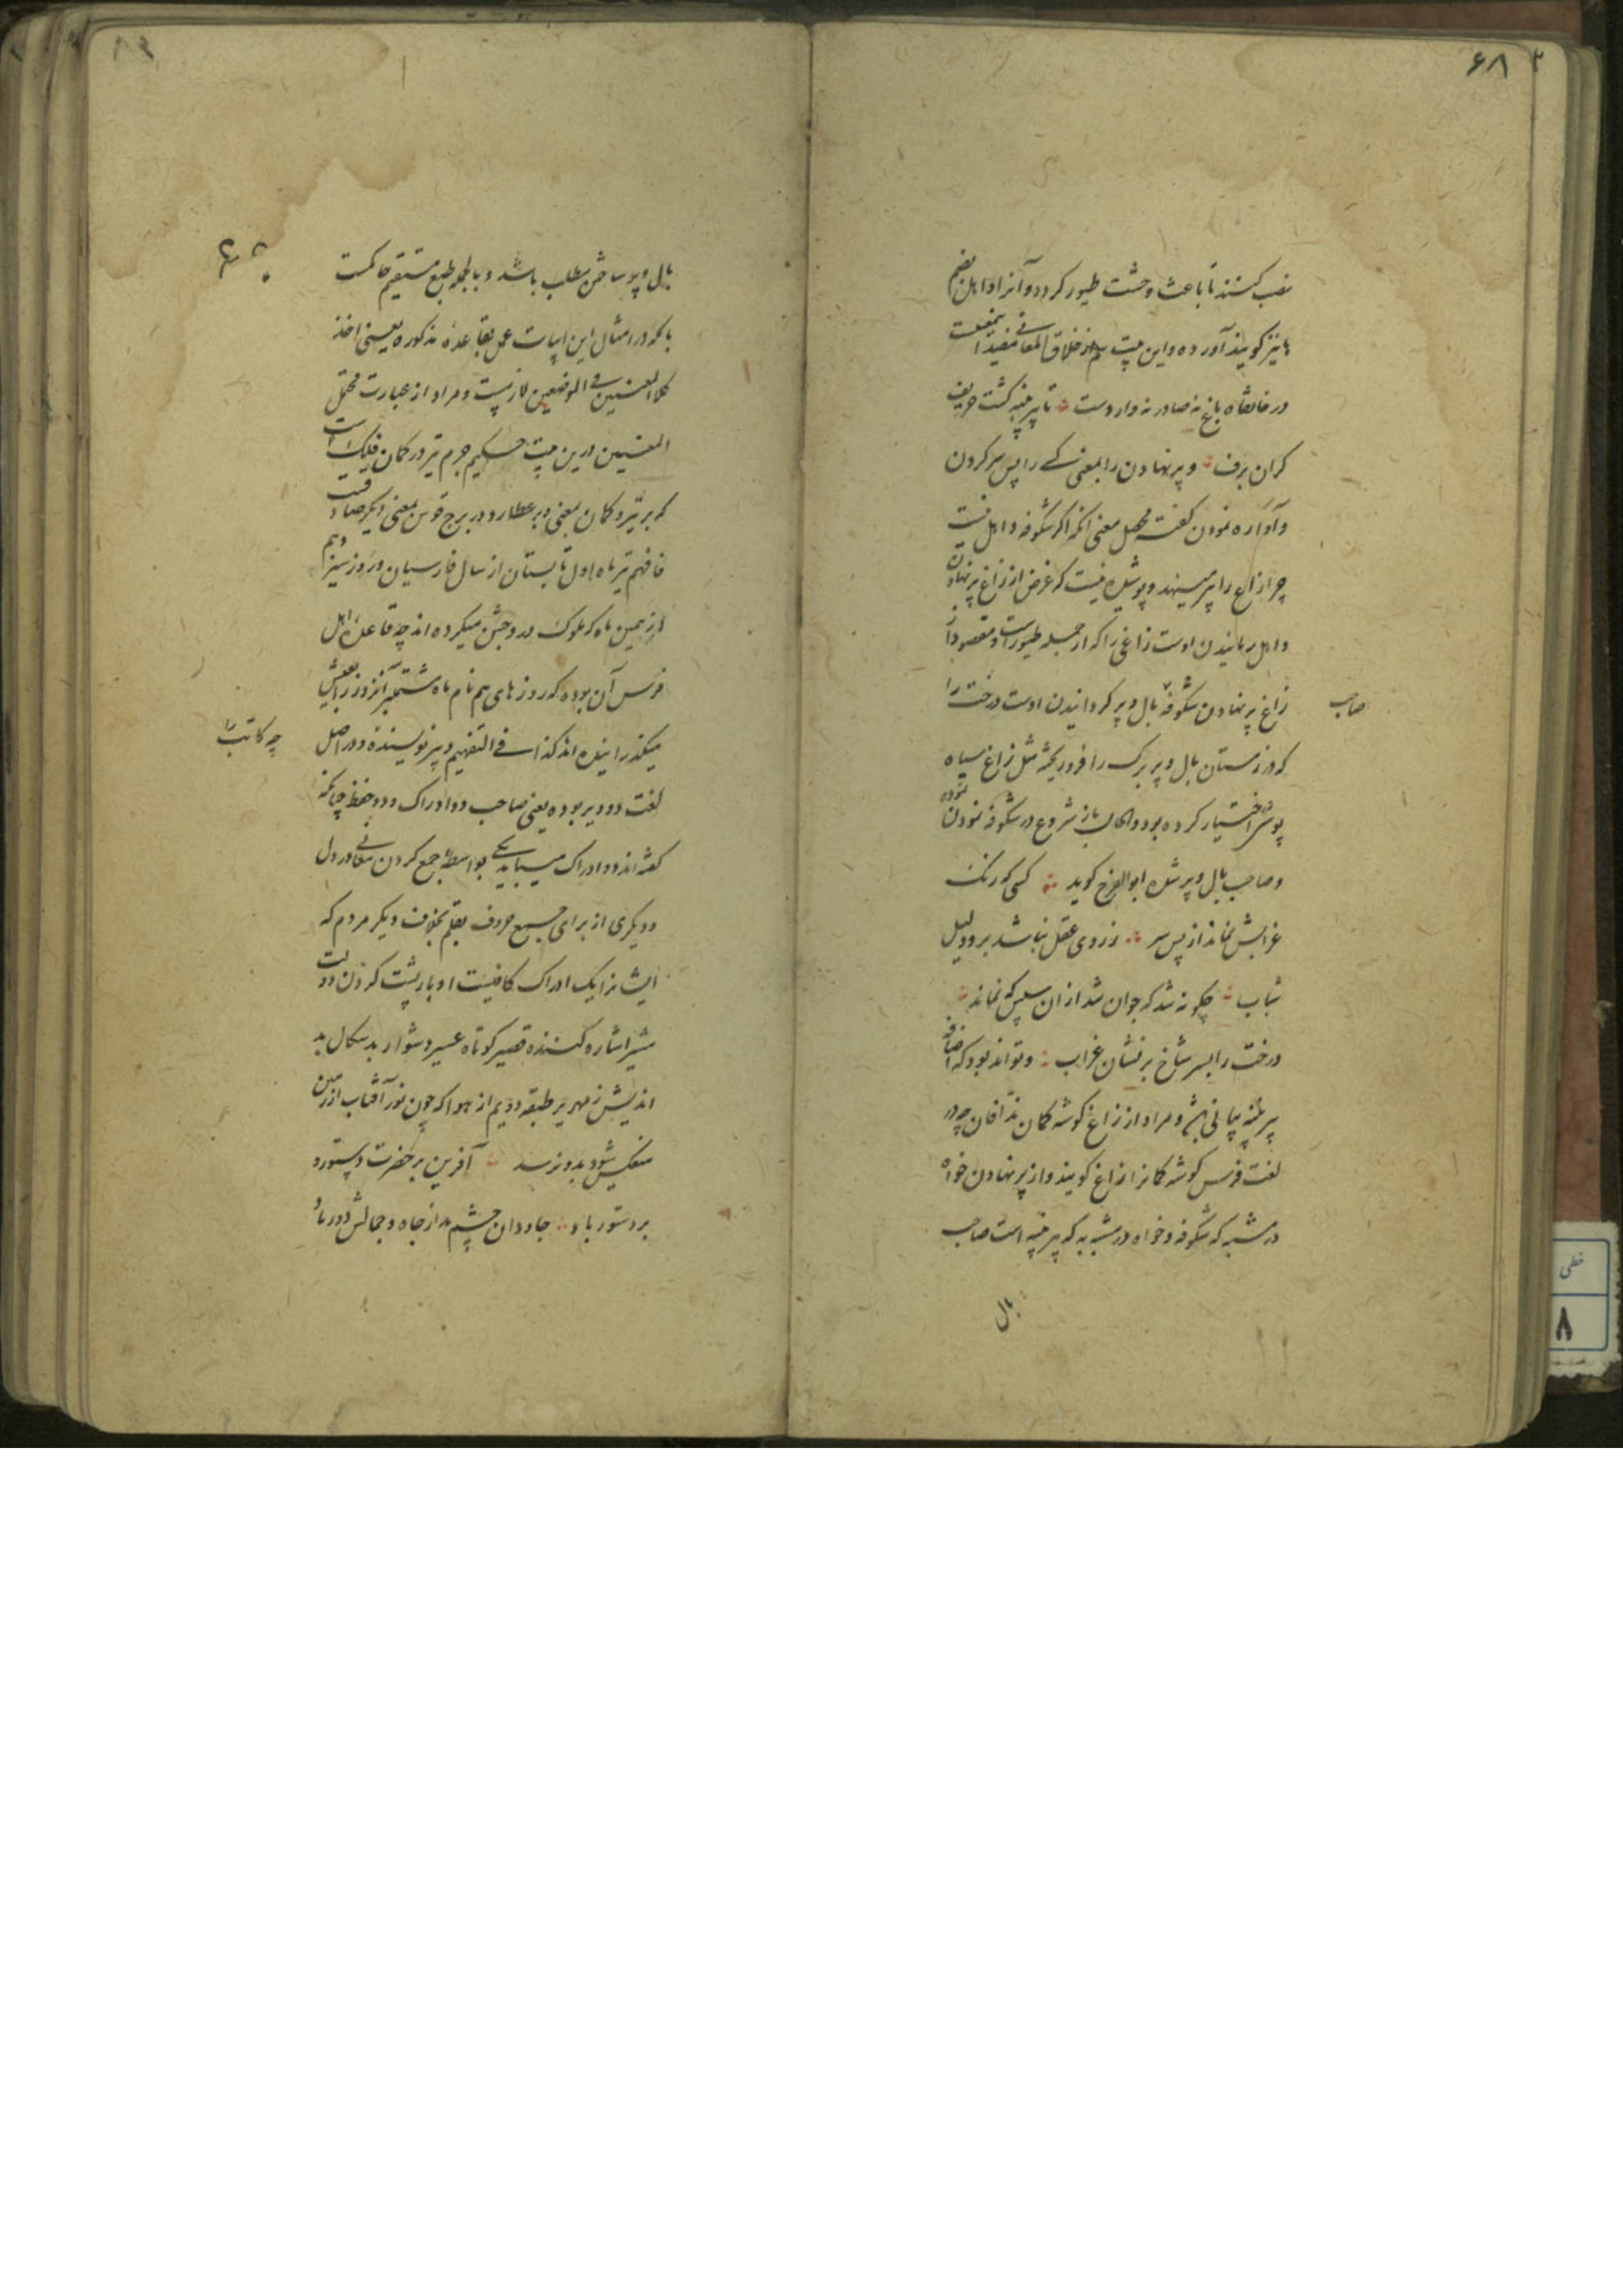 ۶۸
نصب کنند تا باعث وحشت طیور گردد و آنرا داهل بضم
ها نیز گویند آورده و این بیت هم از خلاق المعانی مفید
در خانقاه باغ نه صادر نه واردست تا پیر پنبه گشت حریف
گران برف و پر نهادن را بمعنی کسی را پس سر کردن
و آواره نمودن گفته محصل معنی آنکه اگر شکوفه داهل نیست
چرا زاغ را پر مینهد و پوشیده نیست که غرض از زاغ پر نهادن
داهل رمانیدن اوست زاغی را که از جمله طیور است و مقصود از
زاغ پر نهادن شکوفه بال و پر گردانیدن اوست درخت را
صاحب
که در زمستان بال و پر برگ را فرو ریخته مثل زاغ سیاه
پوشی اختیار کرده بود و الحال باز شروع در شکوفه نمودن نموده
و صاحب بال و پر شده ابوالفرج گوید کسی که رنگ
غرابش نماند از پس سر ز روی عقل نباشد برو دلیل
شباب چگونه شد که جوان شد از آن سپس که نماند
درخت را بسر شاخ بر نشان غراب و تواند بود که اضافه
پر پنبه بیانی باشد و مراد از زاغ گوشه کمان ندافان چه در
لغت فرس گوشه کمانرا زاغ گویند و از پر نهادن خواه
در مشبه که شکوفه و خواه در مشبه به که پر پنبه است صاحب
بال
بال و پر ساختن مطلب باشد و بالجمله طبع مستقیم حاکمست
بآنکه در امثال این ابیات عمل بقاعده مذکوره یعنی اخذ
کلا المعنیین فی الموضعین لازمست و مراد از عبارت محتمل
المعنیین درین بیت حکیم جرم تیر در کمان فلک است
که بر تیر و کمان بمعنی و بر عطارد در برج قوس بمعنی دیگر صادقست
فافهم تیر ماه اول تابستان از سال فارسیان و روز سیزدهم
از همین ماه که ملوک در و جشن میکرده اند چه قاعده اهل
فرس آن بوده که روزهای هم نام ماه شمرده آنروز را بعیش
میگذرانیده اند کذا فی التفهیم و دبیر نویسنده و در اصل
چه کاتب را
لغت دو ویر بوده یعنی صاحب دو ادراک و دو حفظ چنانکه
گفته اند دو ادراک میباید یکی بواسطه جمع کردن معانی در دل
و دیگری از برای جمیع حروف بقلم بخلاف دیگر مردم که
ایشانرا یک ادراک کافیست ادبار پشت کردن دولت
مشیر اشاره کننده قصیر کوتاه عسیر دشوار بد سگال بد
اندیش زمهریر طبقه دویم از هوا که چون نور آفتاب از زمین
منعکس شود بدو نرسد آفرین بر حضرت دستور و
بر دستور باد جاودان چشم بد از جاه و جمالش دور باد
خطی
۸